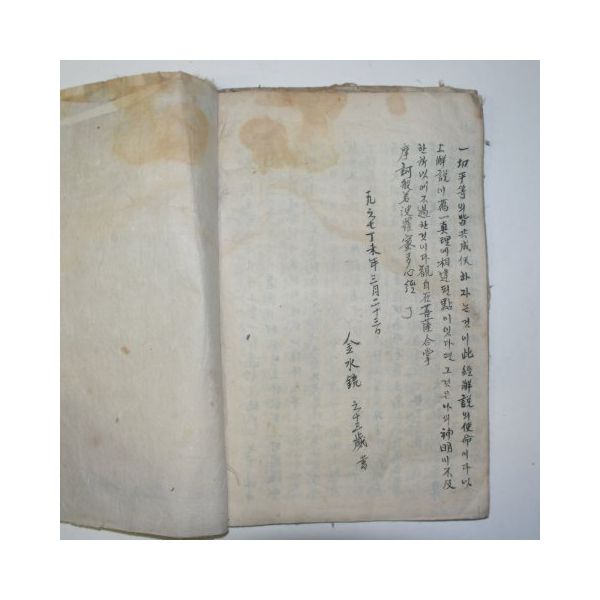 一切平等의皆共成仏하자는것이此經解說의使命이다以
上解說이萬一眞理에相違된點이잇다면그것은나의神明이不及
한所以에不過한것이다觀自在菩薩合掌
摩訶般若波羅蜜多心經 了
一九六七丁未年三月二十三日
金水鏡 六十三歲 書